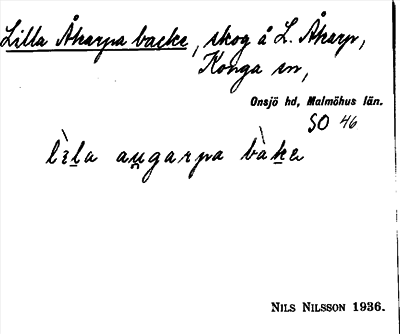 Lilla Åkarpa backe, skog å L. Åkarp,
Konga sn,
Onsjö hd, Malmöhus län.
SO 46
lìla au̯garpa bàkə
NILS NILSSON 1936.